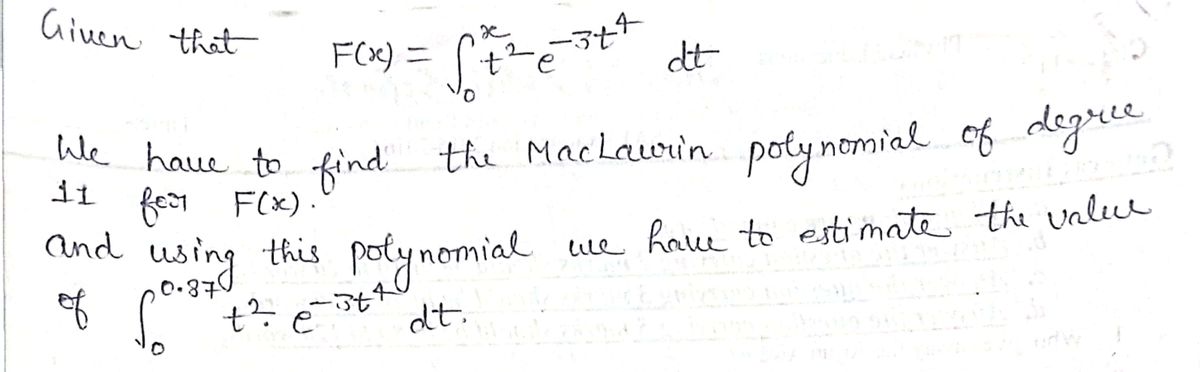 Given that F(x) = ∫₀ˣ t² e^{-3t⁴} dt
We have to find the MacLaurin polynomial of degree
11 for F(x).
and using this polynomial we have to estimate the value
of ∫₀^{0.37} t². e^{-3t⁴} dt.